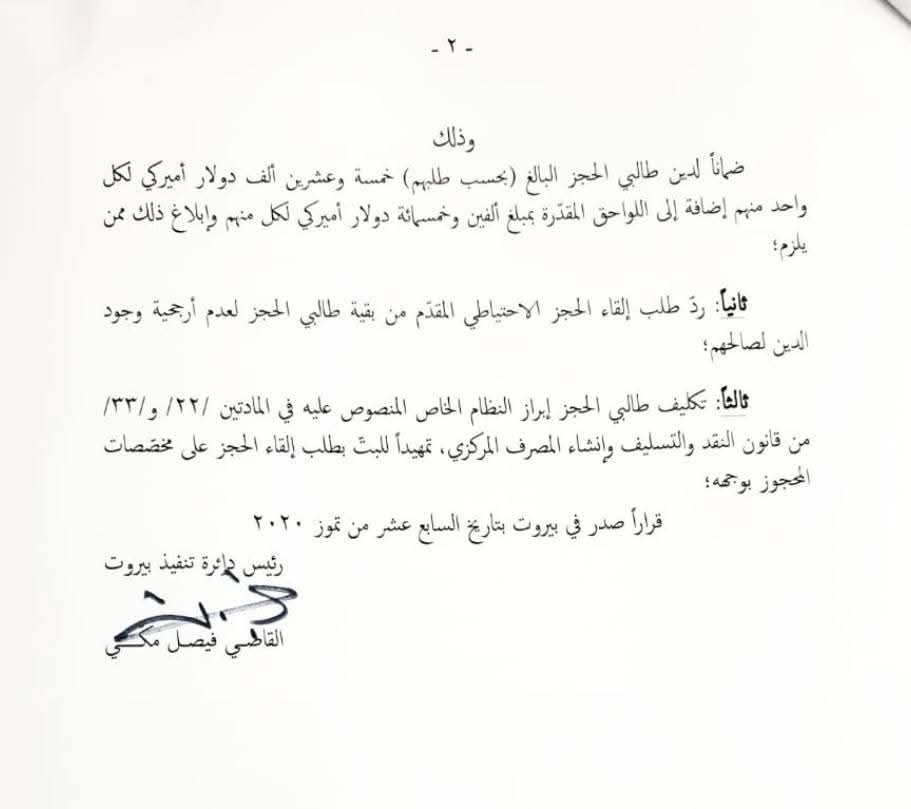 - ٢ -
وذلك
ضماناً لدين طالبي الحجز البالغ (بحسب طلبهم) خمسة وعشرين ألف دولار أميركي لكل
واحد منهم إضافة إلى اللواحق المقدّرة بمبلغ ألفين وخمسمائة دولار أميركي لكل منهم وإبلاغ ذلك ممن
يلزم؛
ثانياً: ردّ طلب إلقاء الحجز الاحتياطي المقدّم من بقية طالبي الحجز لعدم أرجحية وجود
الدين لصالحهم؛
ثالثاً: تكليف طالبي الحجز إبراز النظام الخاص المنصوص عليه في المادتين /٢٢/ و/٣٣/
من قانون النقد والتسليف وإنشاء المصرف المركزي، تمهيداً للبتّ بطلب إلقاء الحجز على مخصّصات
المحجوز بوجهه؛
قراراً صدر في بيروت بتاريخ السابع عشر من تموز ٢٠٢٠
رئيس دائرة تنفيذ بيروت
القاضي فيصل مكّي